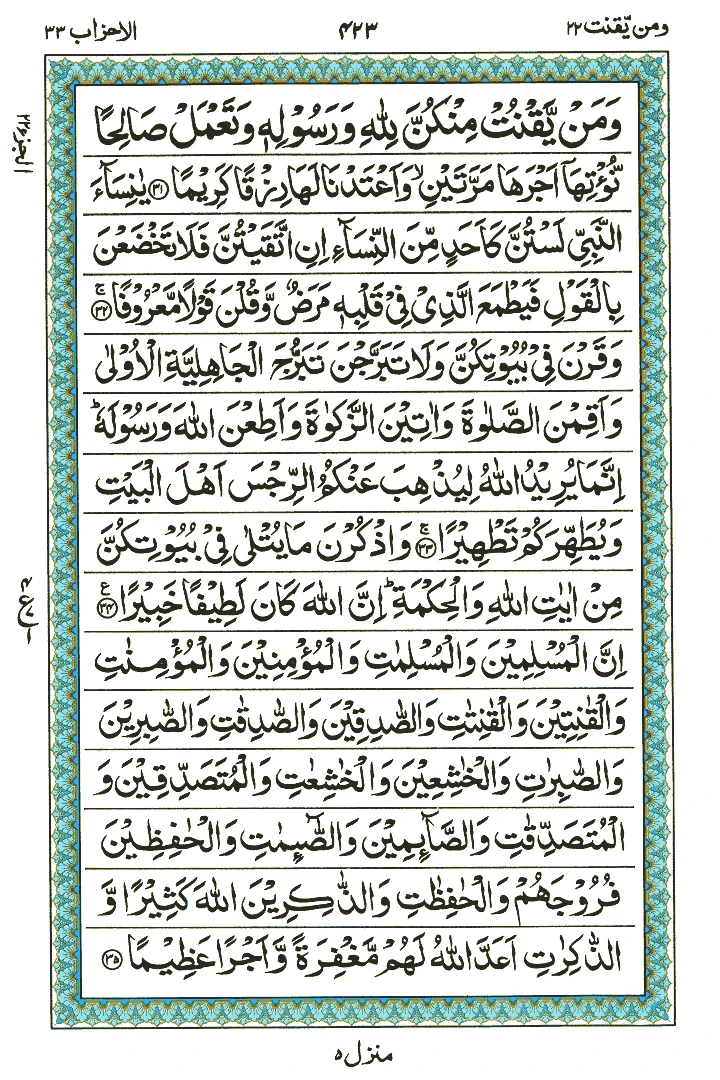 ومن يّقنت ۲۲ ۴۲۳ الاحزاب ۳۳
وَمَنْ يَّقْنُتْ مِنْكُنَّ لِلّٰهِ وَرَسُوْلِهٖ وَتَعْمَلْ صَالِحًا
نُّؤْتِهَآ اَجْرَهَا مَرَّتَيْنِۙ وَاَعْتَدْنَا لَهَا رِزْقًا كَرِيْمًا ﴿۳۱﴾ يٰنِسَآءَ
النَّبِيِّ لَسْتُنَّ كَاَحَدٍ مِّنَ النِّسَآءِ اِنِ اتَّقَيْتُنَّ فَلَا تَخْضَعْنَ
بِالْقَوْلِ فَيَطْمَعَ الَّذِيْ فِيْ قَلْبِهٖ مَرَضٌ وَّقُلْنَ قَوْلًا مَّعْرُوْفًا ﴿۳۲﴾ۚ
وَقَرْنَ فِيْ بُيُوْتِكُنَّ وَلَا تَبَرَّجْنَ تَبَرُّجَ الْجَاهِلِيَّةِ الْاُوْلٰى
وَاَقِمْنَ الصَّلٰوةَ وَاٰتِيْنَ الزَّكٰوةَ وَاَطِعْنَ اللّٰهَ وَرَسُوْلَهٗؕ
اِنَّمَا يُرِيْدُ اللّٰهُ لِيُذْهِبَ عَنْكُمُ الرِّجْسَ اَهْلَ الْبَيْتِ
وَيُطَهِّرَكُمْ تَطْهِيْرًا ﴿۳۳﴾ۚ وَاذْكُرْنَ مَا يُتْلٰى فِيْ بُيُوْتِكُنَّ
مِنْ اٰيٰتِ اللّٰهِ وَالْحِكْمَةِؕ اِنَّ اللّٰهَ كَانَ لَطِيْفًا خَبِيْرًا ﴿۳۴﴾ع
اِنَّ الْمُسْلِمِيْنَ وَالْمُسْلِمٰتِ وَالْمُؤْمِنِيْنَ وَالْمُؤْمِنٰتِ
وَالْقٰنِتِيْنَ وَالْقٰنِتٰتِ وَالصّٰدِقِيْنَ وَالصّٰدِقٰتِ وَالصّٰبِرِيْنَ
وَالصّٰبِرٰتِ وَالْخٰشِعِيْنَ وَالْخٰشِعٰتِ وَالْمُتَصَدِّقِيْنَ وَ
الْمُتَصَدِّقٰتِ وَالصَّآئِمِيْنَ وَالصّٰٓئِمٰتِ وَالْحٰفِظِيْنَ
فُرُوْجَهُمْ وَالْحٰفِظٰتِ وَالذّٰكِرِيْنَ اللّٰهَ كَثِيْرًا وَّ
الذّٰكِرٰتِ اَعَدَّ اللّٰهُ لَهُمْ مَّغْفِرَةً وَّاَجْرًا عَظِيْمًا ﴿۳۵﴾
الجزء۲۲
۴
ع
۱
منزل ۵